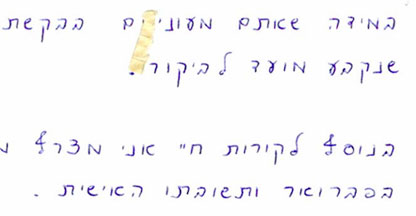 במידה שאתם מעוניים בבקשת
שנקבע מועד לביקור.
בנוסף לקורות חיי אני מצרף
בפברואר ותשובתו האישית.